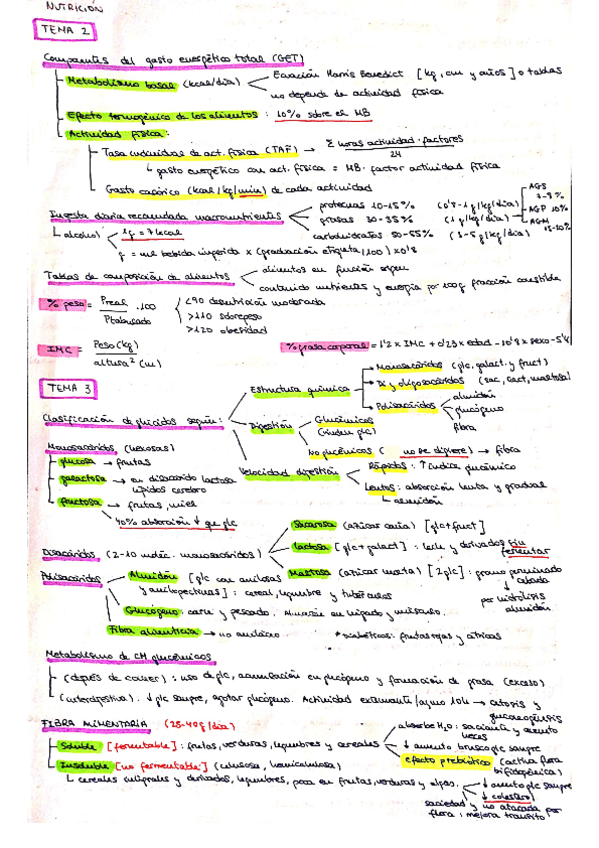 NUTRICIÓN
TEMA 2
Componentes del gasto energético total (GET)
Metabolismo basal (kcal/día)
Ecuación Harris Benedict [kg, cm y años] o tablas
no depende de actividad física
Efecto termogénico de los alimentos : 10% sobre el MB
Actividad física :
Tasa individual de act. física (TAF) → Σ horas actividad · factores
24
gasto energético con act. física = MB · factor actividad física
Gasto calórico (kcal/kg/min) de cada actividad
Ingesta diaria recomendada macronutrientes
proteínas 10-15% (0'8-1g/kg/día)
grasas 30-35% (1g/kg/día)
carbohidratos 50-55% (3-5g/kg/día)
AGS
AGP 10%
AGM
15-20%
alcohol
1g = 7 kcal
g = ml bebida ingerida x (graduación etiqueta/100) x 0'8
Tablas de composición de alimentos
alimentos en función
contenido nutrientes y energía por 100g fracción comestible
% peso = Preal / Ptabulado . 100
<90 desnutrición moderada
>110 sobrepeso
>120 obesidad
IMC = Peso (kg) / altura² (m)
% grasa corporal = 1'2 x IMC + 0'23 x edad - 10'8 x sexo - 5'4
TEMA 3
Clasificación de glúcidos según :
Estructura química
Monosacáridos (glc, galact. y fruct)
Di y oligosacáridos (sac, lact, maltosa)
Polisacáridos
almidón
glucógeno
fibra
Digestión
Glucémicos
(inden glc)
No glucémicos ( no se digiere) → fibra
Velocidad digestión
Rápidos : ↑ índice glucémico
Lentos : absorción lenta y gradual
almidón
Monosacáridos (hexosas)
glucosa → frutas
galactosa → en disacárido lactosa
lípidos cerebro
fructosa → frutas, miel
40% absorción ↓ que glc
Disacáridos (2-10 moléc. monosacáridos)
Sacarosa (azúcar caña) [glc + fruct]
lactosa [glc + galact] : leche y derivados sin fermentar
Maltosa (azúcar malta) [2 glc] : grano germinado
cebada
por hidrólisis
almidón
Polisacáridos
Almidón [glc con amilosas
y amilopectinas] : cereal, legumbre y tubérculos
Glucógeno : carne y pescado. Almacén en hígado y músculo.
Fibra alimentaria → no amiláceo
* Diabéticos : frutas rojas y cítricas
Metabolismo de CH glucémicos
(después de comer) : uso de glc, acumulación en glucógeno y formación de grasa (exceso)
(interdigestiva). ↓ glc sangre, agotar glucógeno. Actividad extenuante/ayuno 10h → cetosis y
gluconeogénesis
FIBRA ALIMENTARIA (25-40g/día)
Soluble [fermentable] : frutas, verduras, legumbres y cereales
absorbe H₂O : saciante y aumento
heces
↓ aumento brusco glc sangre
efecto prebiótico (activa flora
bifidogénica)
Insoluble [no fermentable] (celulosa, hemicelulosa)
cereales integrales y derivados, legumbres, poco en frutas, verduras y algas.
↓ aumento glc sangre
↓ colesterol
saciedad y no atacada por
flora : mejora tránsito